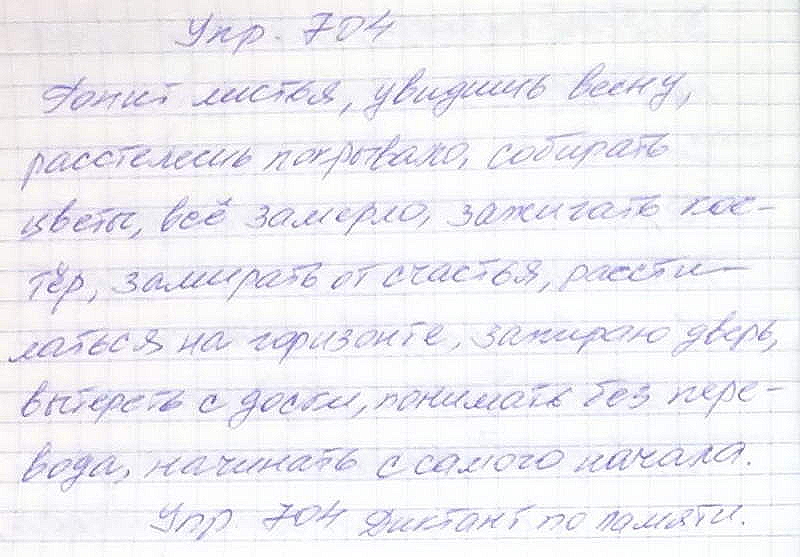 Упр. 704
Гонит листья, увидишь весну,
расстелешь покрывало, собирать
цветы, всё замерло, зажигать кос-
тёр, замирать от счастья, рассти-
латься на горизонте, запираю дверь,
вытереть с доски, понимать без пере-
вода, начинать с самого начала.
Упр 704 Диктант по памяти.